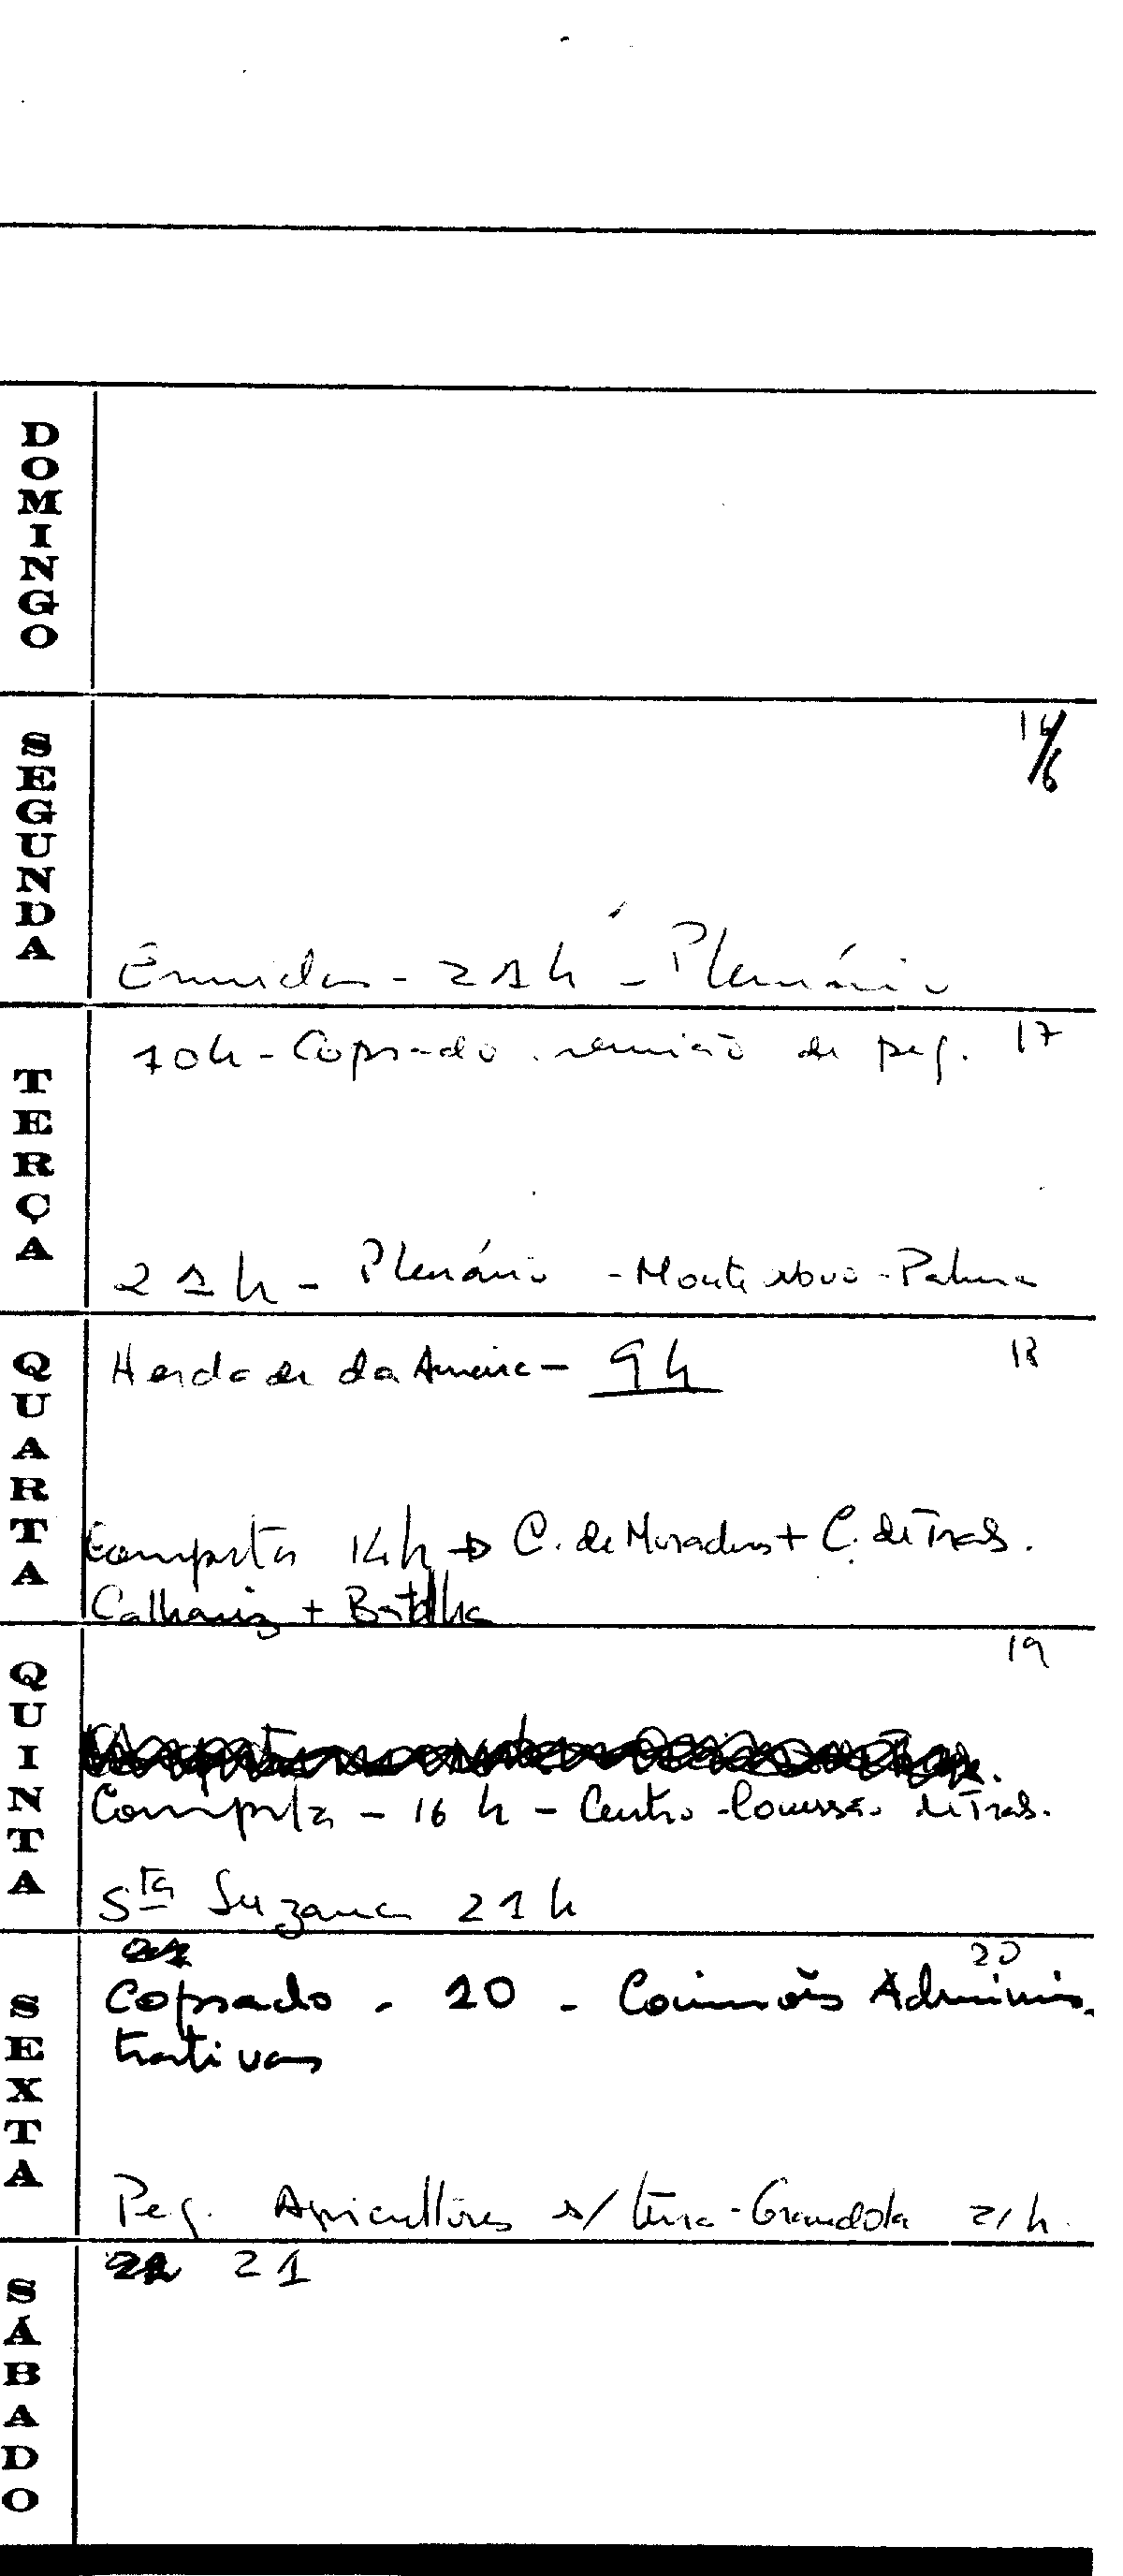 DOMINGO
SEGUNDA
16/6
Ermidas - 21h - Plenário
TERÇA
10h - Coprado. reunião de peq. 17
21h - Plenário - Monte novo - Palma
QUARTA
Herdade da Ameira - 9h 18
Comporta 14h → C. de Moradores + C. de Trab.
Calhariz + Batalha
QUINTA
19
Comporta - 16h - Centro - Comissão de Trab.
Sta Suzana 21h
SEXTA
20
Coprado - 20 - Comissões Adminis-
trativas
Peq. Agricultores s/ terra - Grandola 21h.
SÁBADO
21